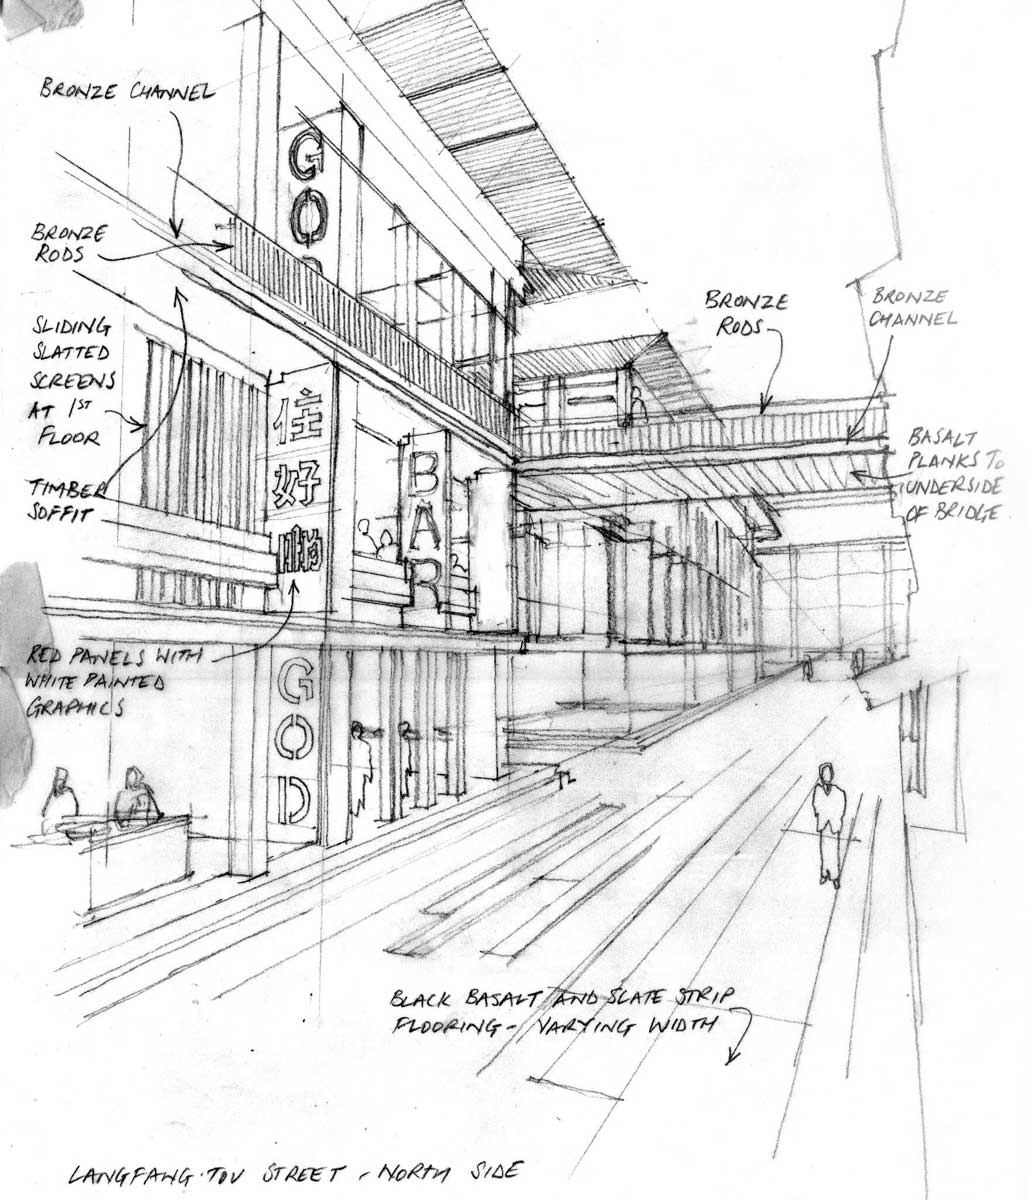 BRONZE CHANNEL
BRONZE
RODS
SLIDING
SLATTED
SCREENS
AT 1ST
FLOOR
TIMBER
SOFFIT
RED PANELS WITH
WHITE PAINTED
GRAPHICS
GO
住
好
啲
BAR
GOD
BRONZE
RODS
BRONZE
CHANNEL
BASALT
PLANKS TO
UNDERSIDE
OF BRIDGE
BLACK BASALT AND SLATE STRIP
FLOORING - VARYING WIDTH
LANGFANG STREET - NORTH SIDE